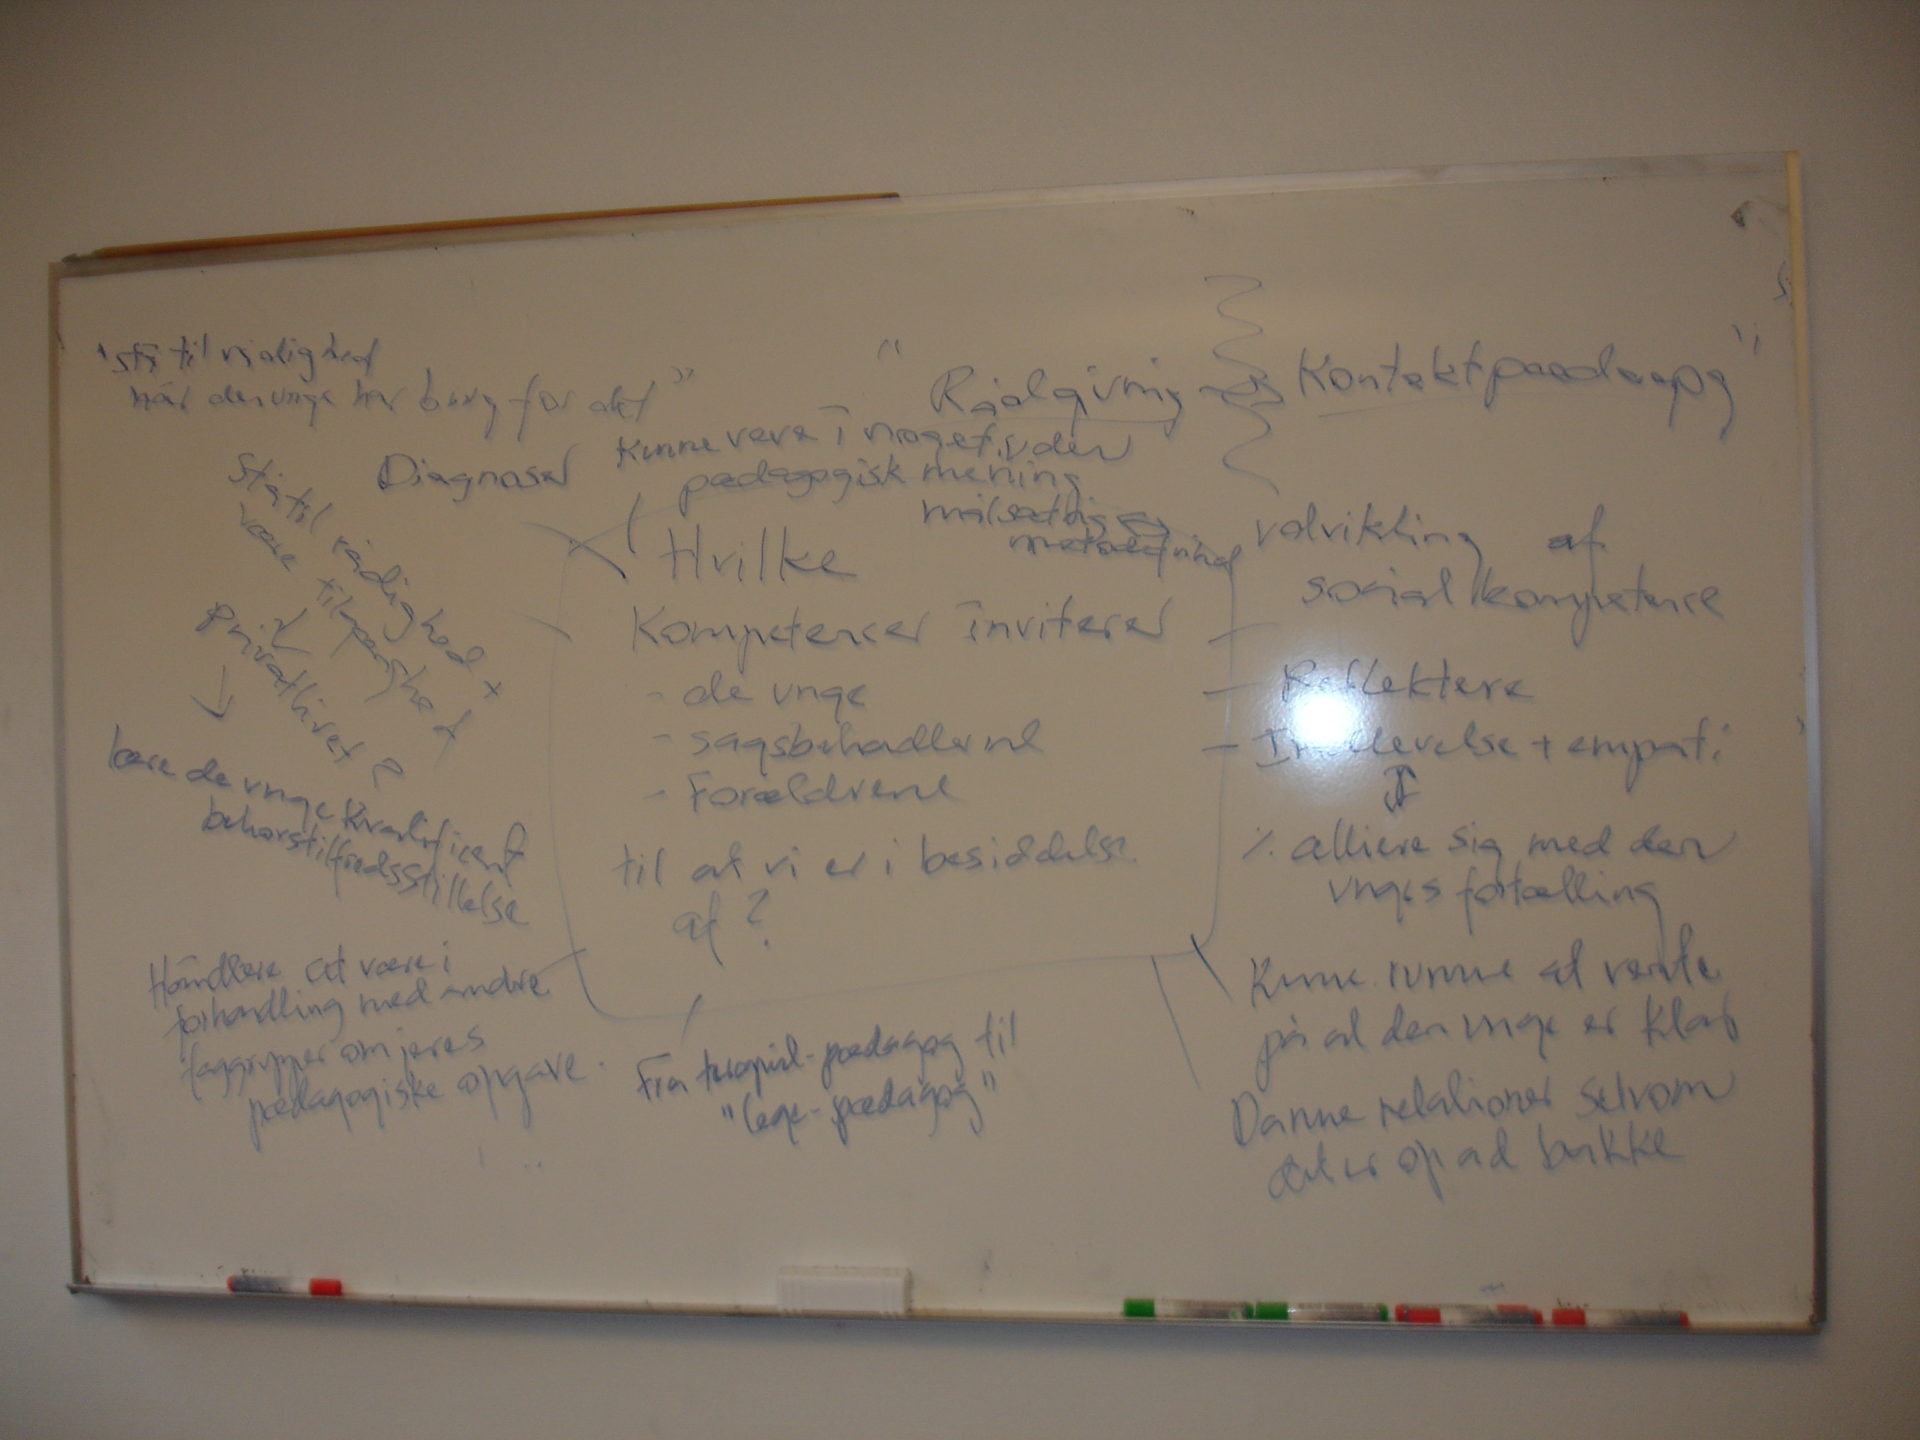 "stå til rådighed
når den unge har brug for det"
" Rådgivning Kontaktpædagog "
Diagnoser
Kunne være i noget uden
pædagogisk mening
målsætning
Stå til rådighed +
være tilgængelighed
Privatlivet ?
lære de unge kvalificeret
behovstilfredsstillelse
Håndtere at være i
forhandling med andre
faggrupper om jeres
pædagogiske opgave.
Hvilke
Kompetencer inviterer
- de unge
- sagsbehandlerne
- Forældrene
til at vi er i besiddelse
af ?
Fra terapist-pædagog til
"lege-pædagog"
udvikling af
social kompetence
- Reflektere
- Indlevelse + empati
÷ alliere sig med den
unges fortælling
Kunne rumme at vente
på at den unge er klar
Danne relationer selvom
det er op ad bakke